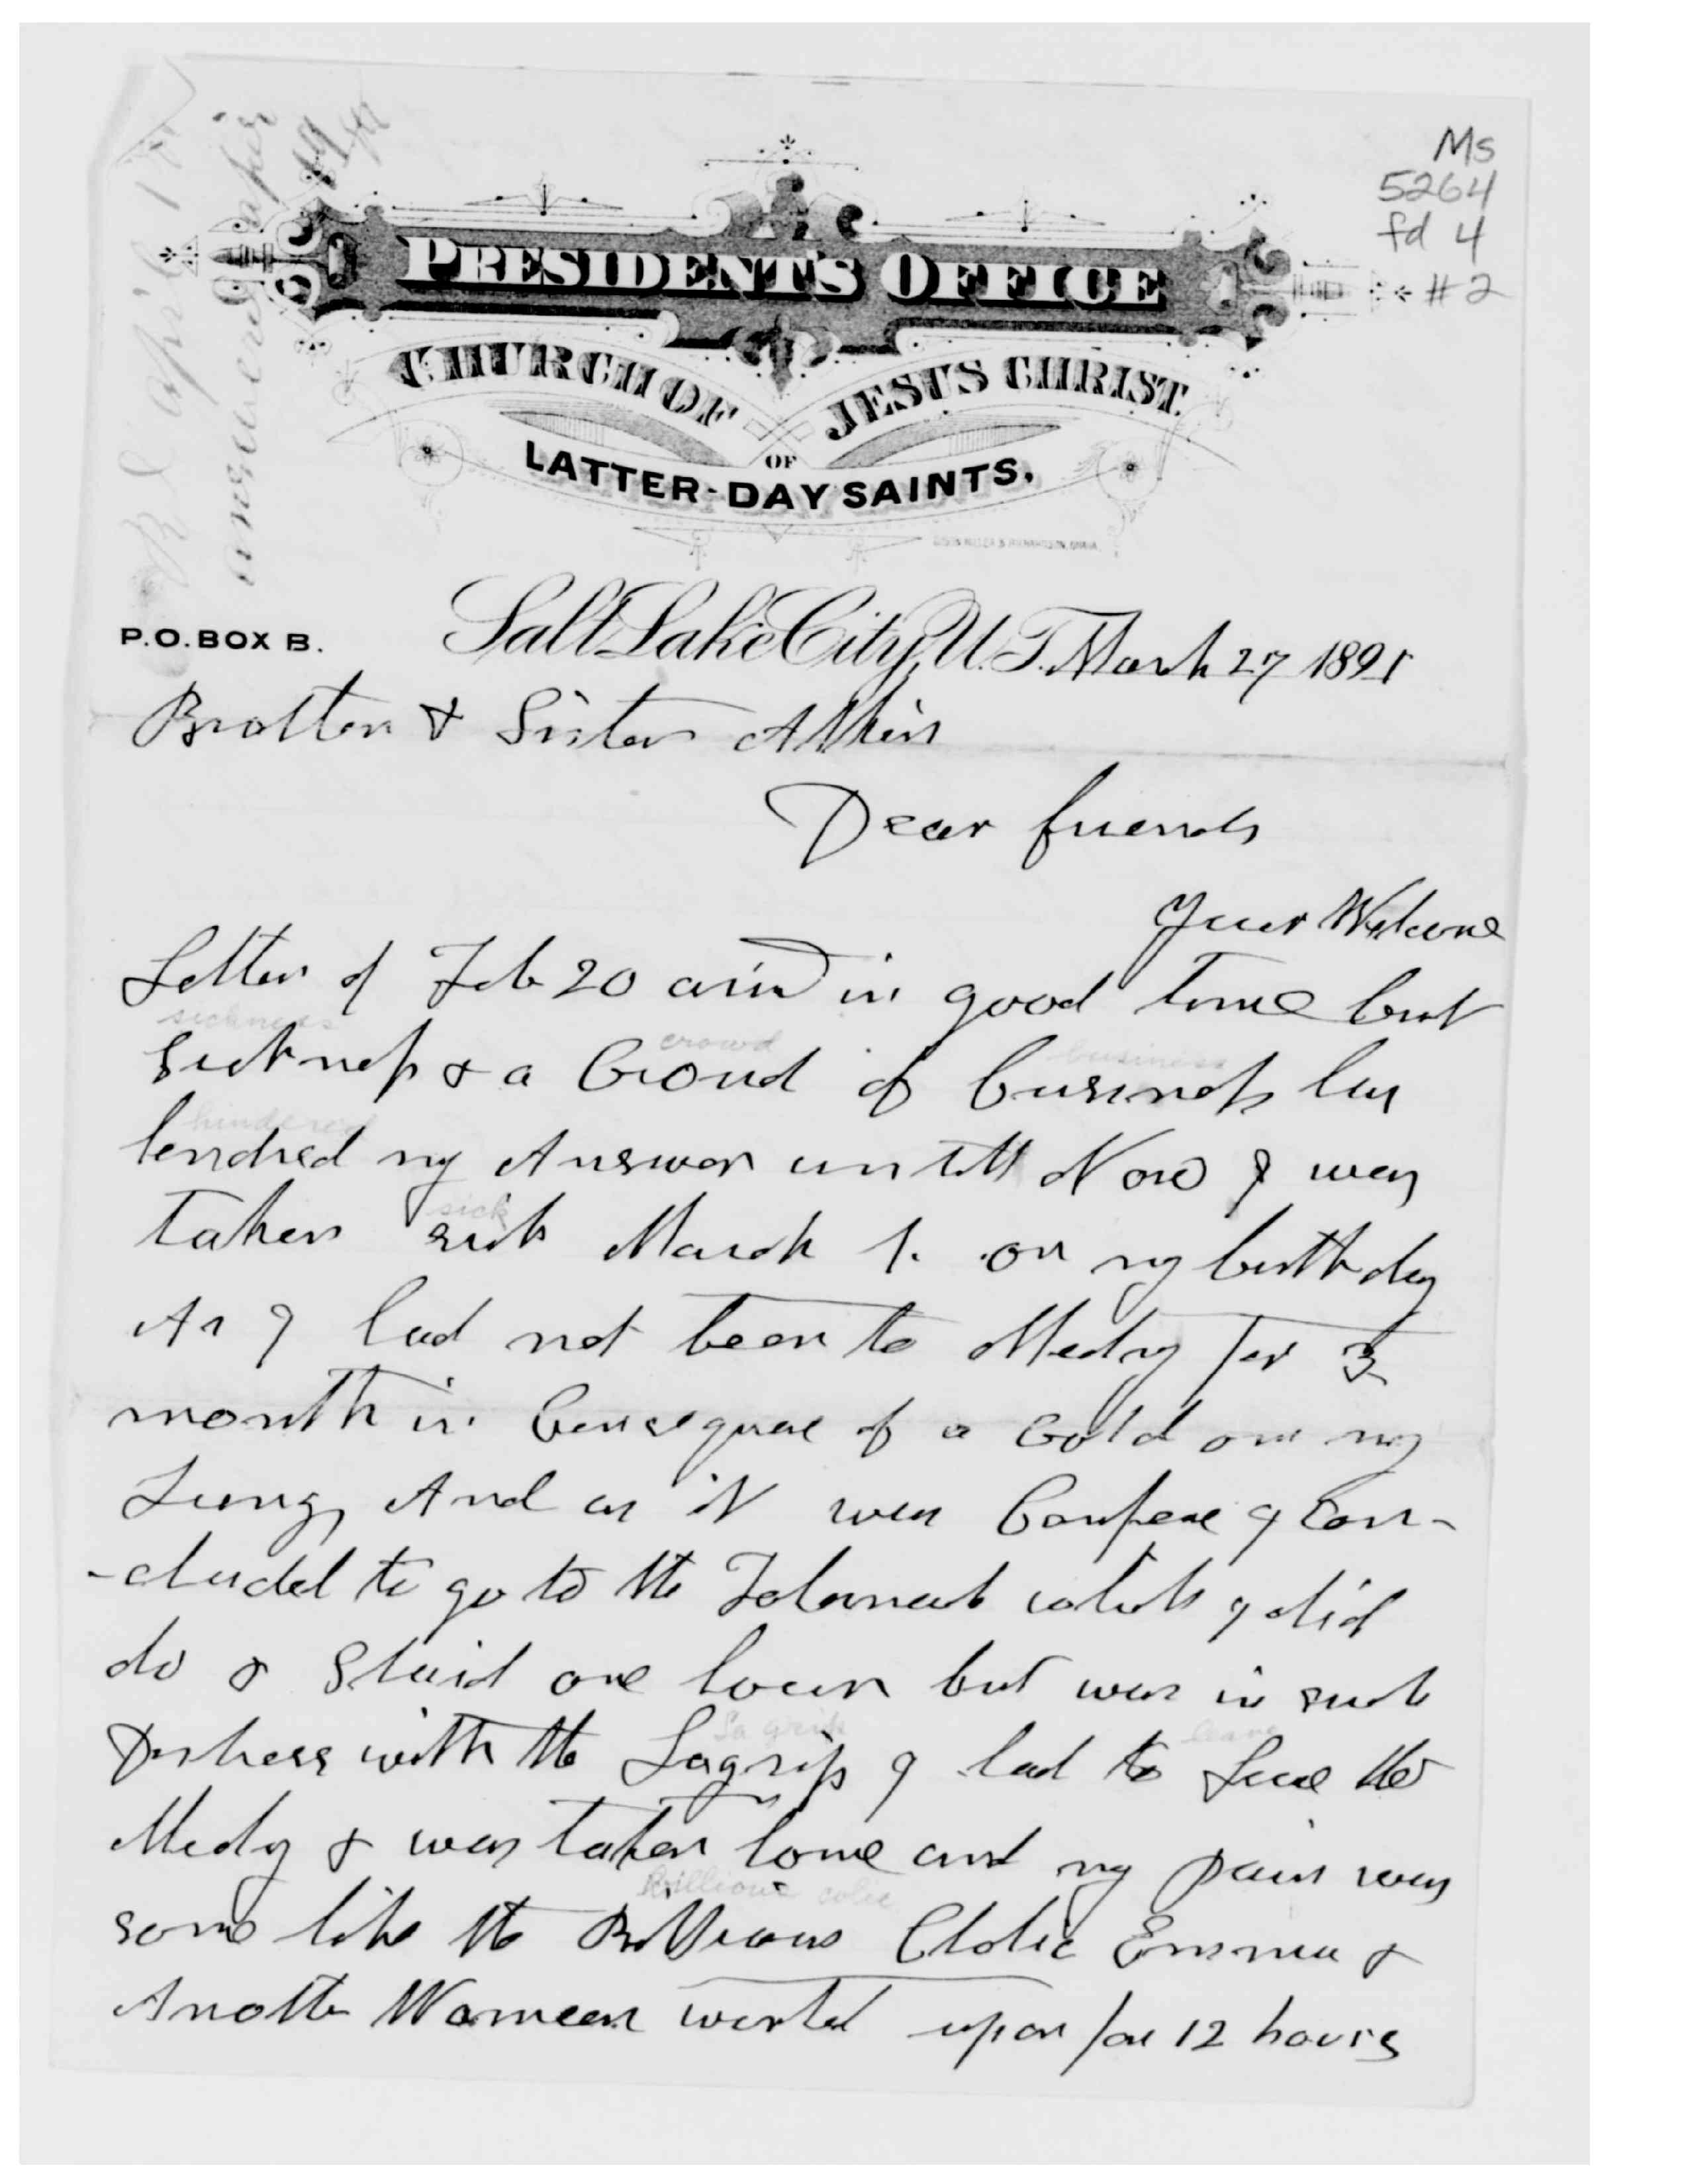 Ms
5264
fd 4
#2
R d April 1st
answered April
PRESIDENT'S OFFICE
CHURCH OF JESUS CHRIST
OF
LATTER-DAY SAINTS.
P.O. BOX B.
Salt Lake City, U.T. March 27 1891
Brother & Sister Atkin
Dear friends
Your Welcome
Letter of Feb 20 arivd in good time but
sickness
crowd
business
Sickness & a Croud of business has
hindered
hendred my Answer untill Now I was
sick
taken sick March 1. on my birth day
As I had not been to Meeting for 3
month in Consequence of a Cold on my
Lungs And as it was Conference I Con-
-cluded to go to the Tabernacle which I did
do & Staid one hour but was in such
La grip
leave
Distress with the Lagrip I had to Leave the
Meeting & was taken home and my pain was
billious colic
some like the Billious Cholic Emma &
Another Woman worked upon for 12 hours